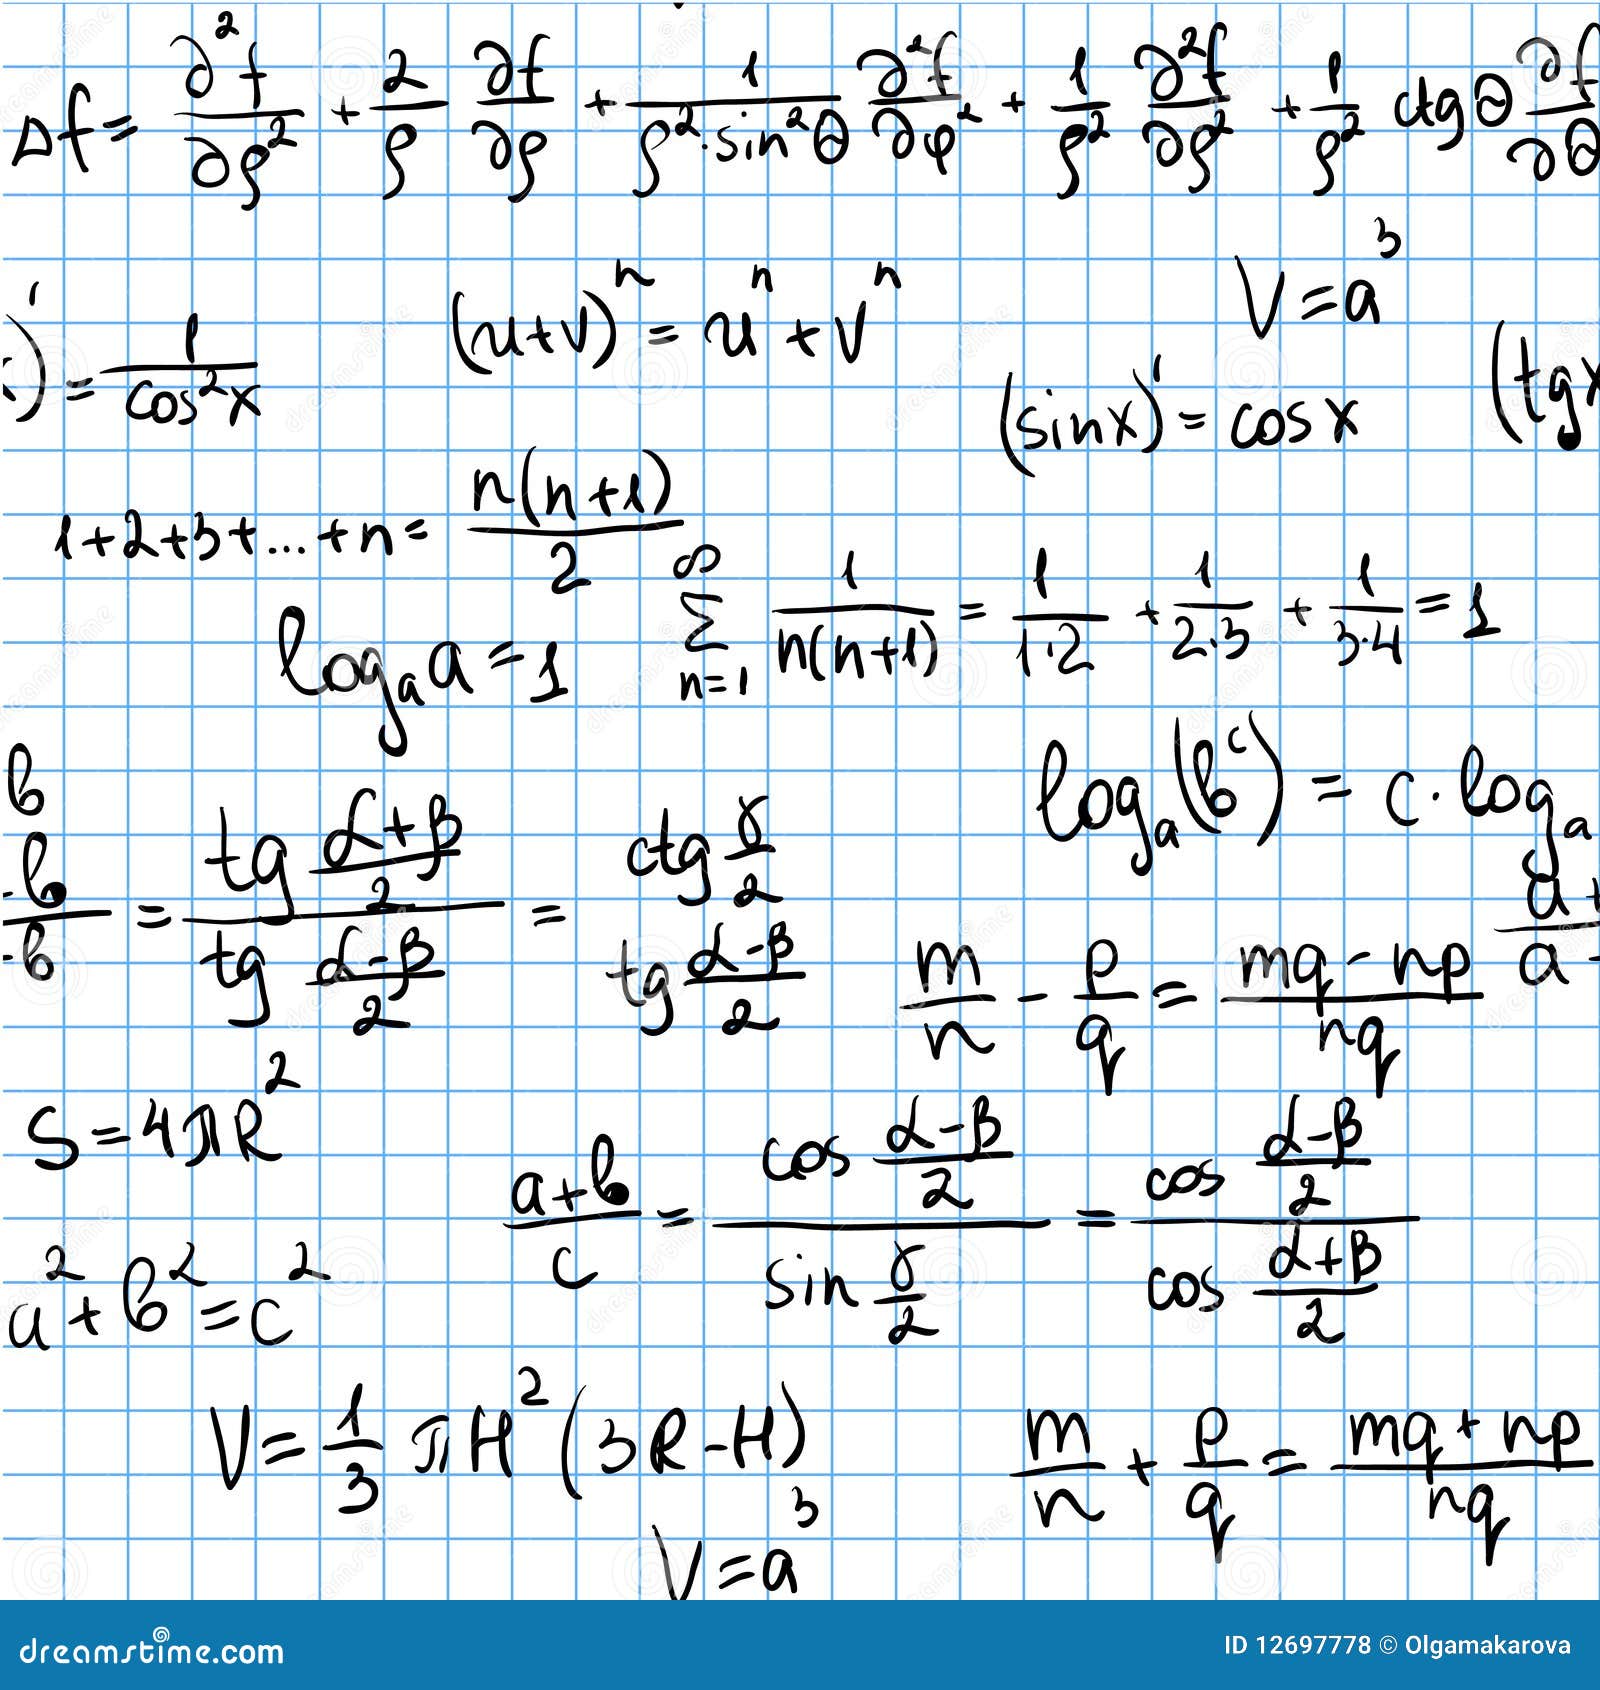 Δf = ∂²f/∂ρ² + 2/ρ ∂f/∂ρ + 1/(ρ²·sin²θ) ∂²f/∂φ² + 1/ρ² ∂²f/∂ρ² + 1/ρ² ctgθ ∂f/∂θ
)' = 1/cos²x
(u+v)ⁿ = uⁿ + vⁿ
V = a³
(sinx)' = cosx
(tgx
1+2+3+...+n = n(n+1)/2
∞ Σ n=1 1/(n(n+1)) = 1/(1·2) + 1/(2·3) + 1/(3·4) = 1
logₐa = 1
logₐ(bᶜ) = c·logₐ
b
-b/-b = tg (α+β)/2 / tg (α-β)/2 = ctg γ/2 / tg (α-β)/2
a+/a-
m/n - p/q = (mq - np)/nq
S = 4πR²
(a+b)/c = cos (α-β)/2 / sin γ/2 = cos (α-β)/2 / cos (α+β)/2
a² + b² = c²
V = 1/3 πH² (3R-H)
m/n + p/q = (mq + np)/nq
V = a³
dreamstime.com
ID 12697778 © Olgamakarova